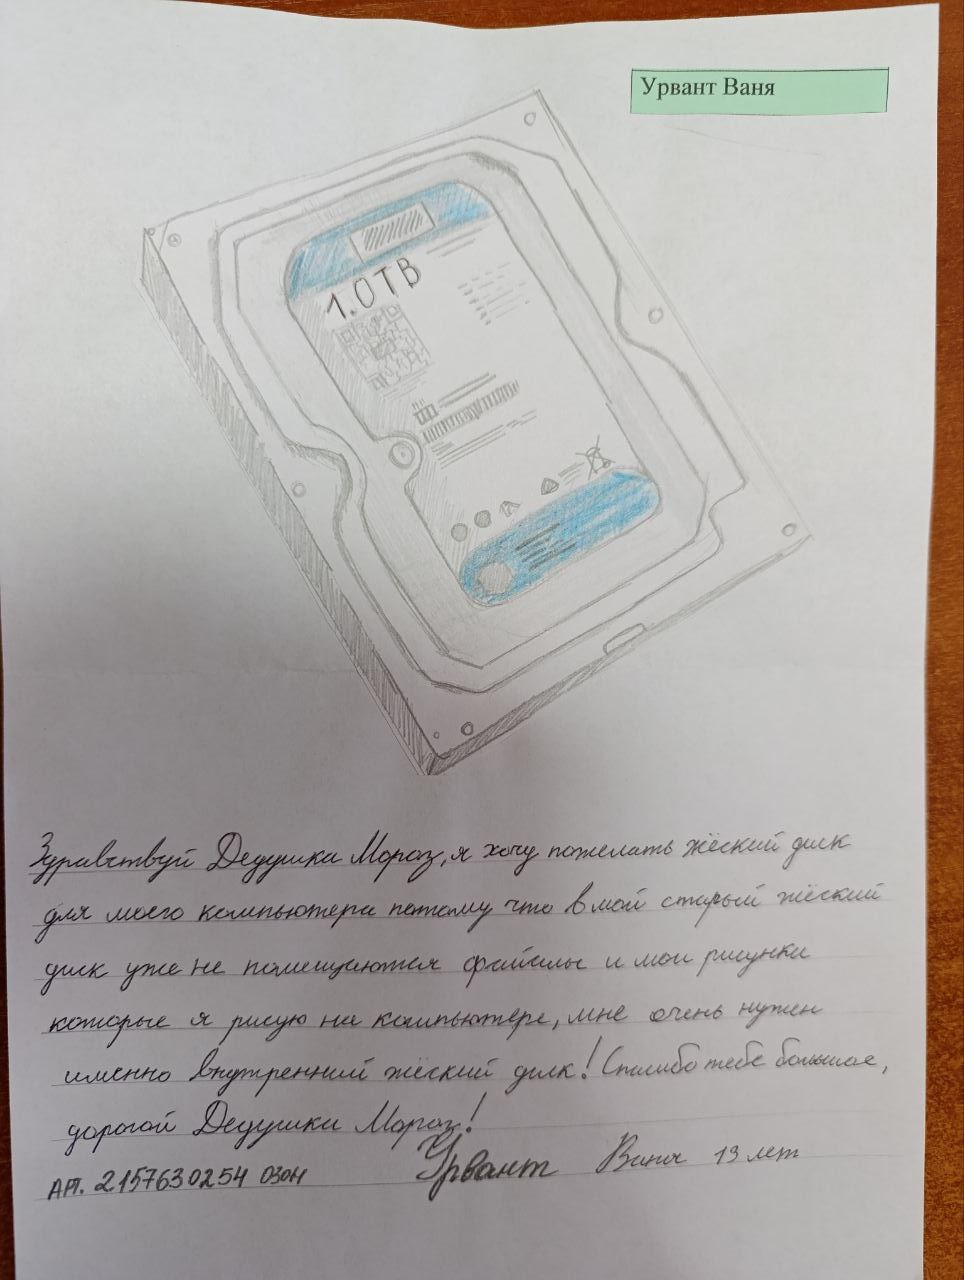 Урвант Ваня
1.0 TB
Здравствуй Дедушка Мороз, я хочу пожелать жёский диск
для моего компьютера потому что в мой старый жёский
диск уже не помещаются файлы и мои рисунки
которые я рисую на компьютере, мне очень нужен
именно внутренний жёский диск! Спасибо тебе большое,
дорогой Дедушка Мороз!
Урвант Ваня 13 лет
Арт. 2157630254 ОЗОН